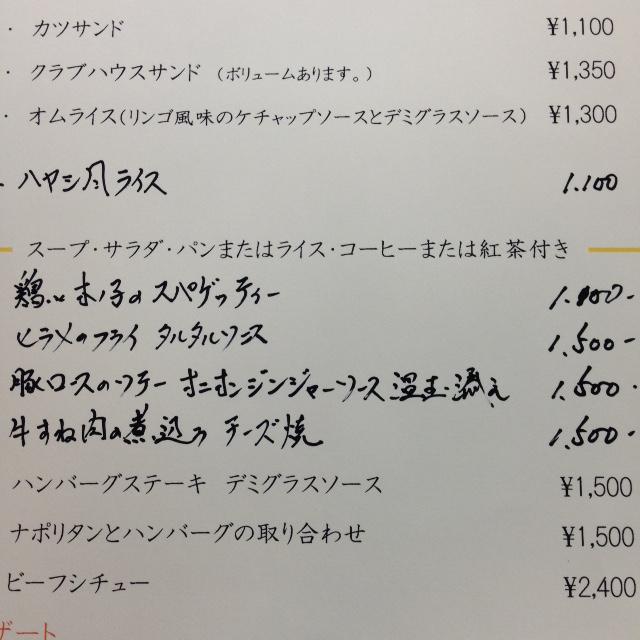 ・ カツサンド ¥1,100
・ クラブハウスサンド （ボリュームあります。） ¥1,350
・ オムライス（リンゴ風味のケチャップソースとデミグラスソース） ¥1,300
・ ハヤシ風ライス 1.100
スープ・サラダ・パンまたはライス・コーヒーまたは紅茶付き
鶏と木ノ子のスパゲッティー
ヒラメのフライ タルタルソース 1.500-
豚ロースのソテー オニオンジンジャーソース 温玉添え 1.500-
牛すね肉の煮込み チーズ焼 1.500-
ハンバーグステーキ デミグラスソース ¥1,500
ナポリタンとハンバーグの取り合わせ ¥1,500
ビーフシチュー ¥2,400
ザート